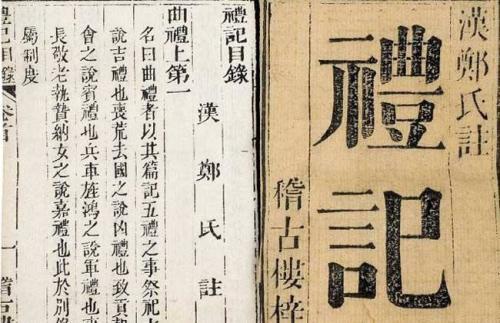 漢鄭氏註
禮記
稽古樓梓
禮記目錄
漢鄭氏註
曲禮上第一
名曰曲禮者以其篇記五禮之事祭祀
說吉禮也喪荒去國之說凶禮也致貢
會之說賓禮也兵車旌鴻之說軍禮也
長敬老執贄納女之說嘉禮也此於別
屬制度
禮記目錄
一
稽古樓